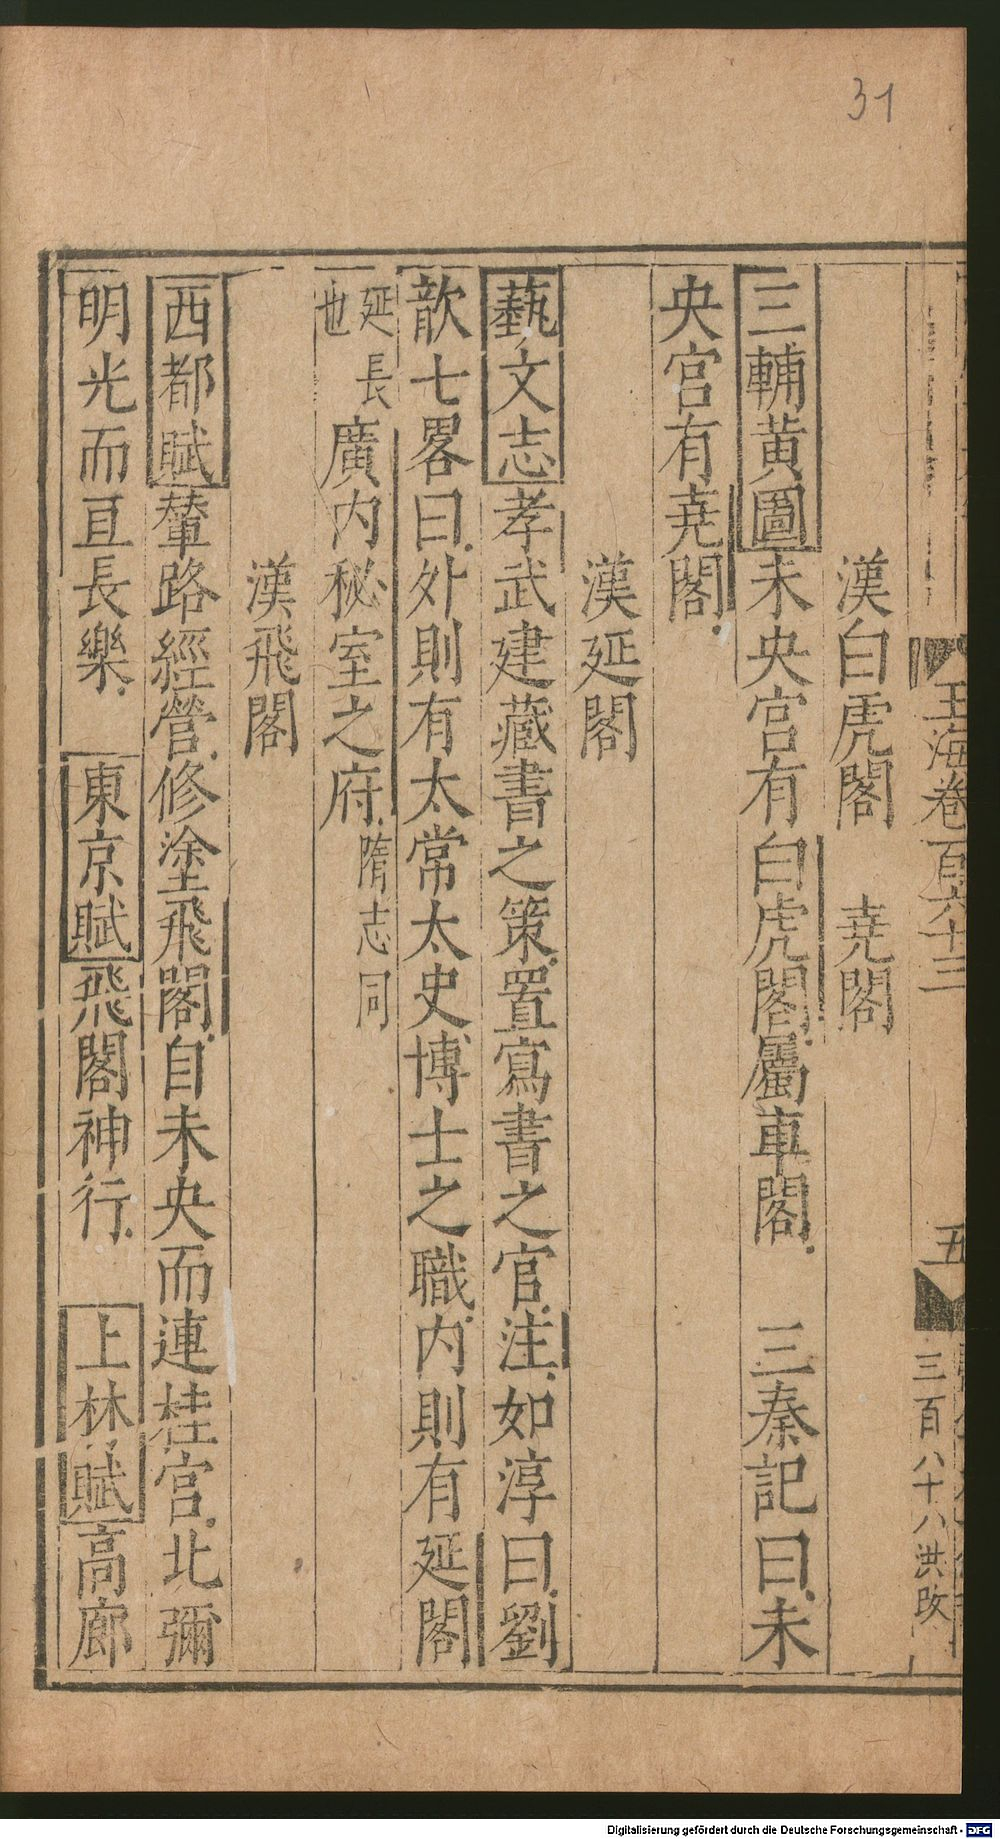 31
玉海卷百六十三
五
三百八十八洪攺
漢白虎閣 堯閣
三輔黃圖未央宮有白虎閣屬車閣 三秦記曰未
央宮有堯閣
漢延閣
藝文志孝武建藏書之策置寫書之官注如淳曰劉
歆七畧曰外則有太常太史博士之職內則有延閣
延長也廣內秘室之府隋志同
漢飛閣
西都賦輦路經營修塗飛閣自未央而連桂宮北彌
明光而亘長樂 東京賦飛閣神行 上林賦高廊
Digitalisierung gefördert durch die Deutsche Forschungsgemeinschaft - DFG